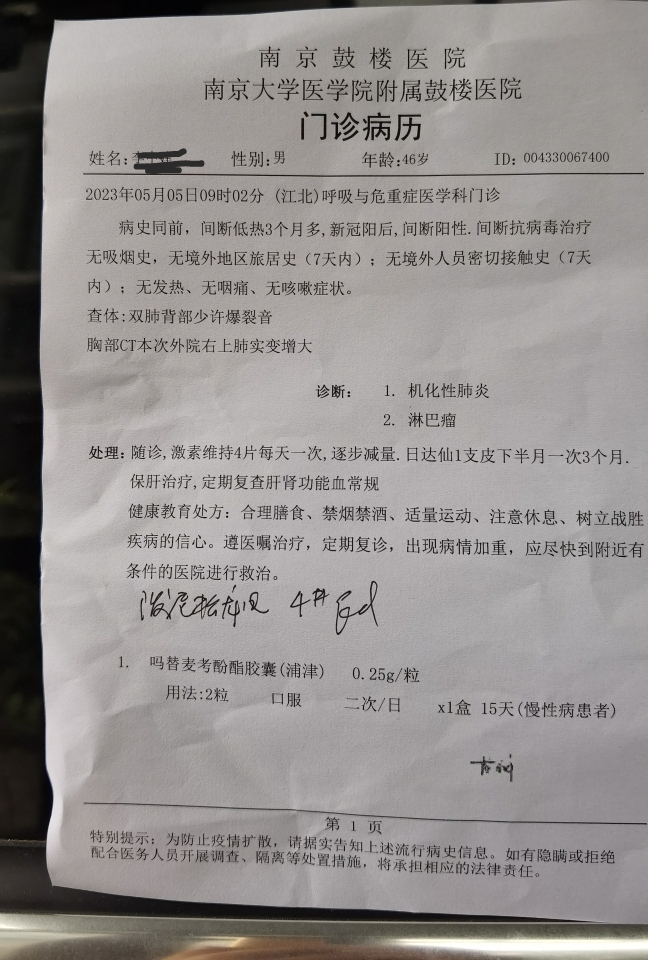 南京鼓楼医院
南京大学医学院附属鼓楼医院
门诊病历
姓名: 性别:男 年龄:46岁 ID: 004330067400
2023年05月05日09时02分 (江北)呼吸与危重症医学科门诊
病史同前, 间断低热3个月多, 新冠阳后, 间断阳性. 间断抗病毒治疗
无吸烟史, 无境外地区旅居史 (7天内) ; 无境外人员密切接触史 (7天
内) ; 无发热、无咽痛、无咳嗽症状。
查体:双肺背部少许爆裂音
胸部CT本次外院右上肺实变增大
诊断: 1. 机化性肺炎
2. 淋巴瘤
处理: 随诊, 激素维持4片每天一次, 逐步减量. 日达仙1支皮下半月一次3个月.
保肝治疗, 定期复查肝肾功能血常规
健康教育处方: 合理膳食、禁烟禁酒、适量运动、注意休息、树立战胜
疾病的信心。遵医嘱治疗, 定期复诊, 出现病情加重, 应尽快到附近有
条件的医院进行救治。
4# qd
1. 吗替麦考酚酯胶囊(浦津) 0.25g/粒
用法:2粒 口服 二次/日 x1盒 15天(慢性病患者)
第 1 页
特别提示: 为防止疫情扩散, 请据实告知上述流行病史信息。如有隐瞒或拒绝
配合医务人员开展调查、隔离等处置措施, 将承担相应的法律责任。